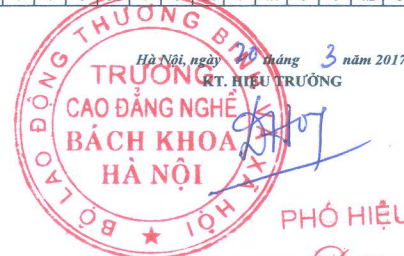 Hà Nội, ngày 20 tháng 3 năm 2017
KT. HIỆU TRƯỞNG
BỘ LAO ĐỘNG THƯƠNG BINH VÀ XÃ HỘI
TRƯỜNG
CAO ĐẲNG NGHỀ
BÁCH KHOA
HÀ NỘI
PHÓ HIỆU